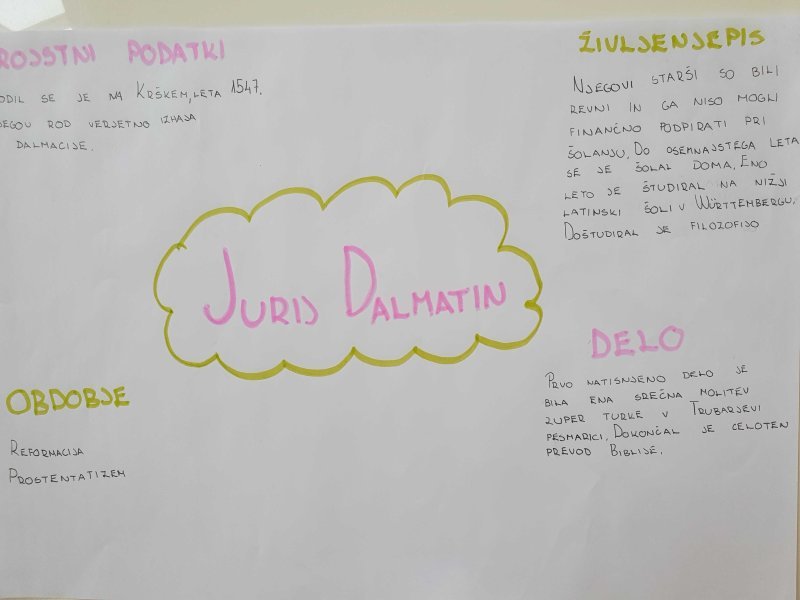 ROJSTNI PODATKI
ODIL SE JE NA KRŠKEM, LETA 1547.
JEGOV ROD VERJETNO IZHAJA
DALMACIJE.
ŽIVLJENJEPIS
NJEGOVI STARŠI SO BILI
REVNI IN GA NISO MOGLI
FINANČNO PODPIRATI PRI
ŠOLANJU. DO OSEMNAJSTEGA LETA
SE JE ŠOLAL DOMA. ENO
LETO JE ŠTUDIRAL NA NIŽJI
LATINSKI ŠOLI V WÜRTTEMBERGU.
DOŠTUDIRAL JE FILOZOFIJO
JURIJ DALMATIN
OBDOBJE
REFORMACIJA
PROSTENTATIZEM
DELO
PRVO NATISNJENO DELO JE
BILA ENA SREČNA MOLITEV
ZUPER TURKE V TRUBARJEVI
PESMARICI. DOKONČAL JE CELOTEN
PREVOD BIBLIJE.